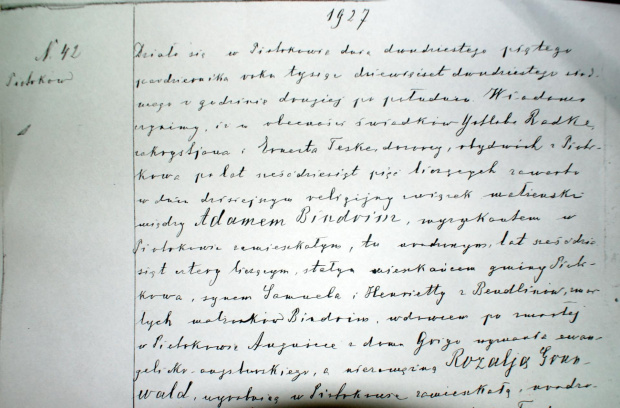 1927
N. 42
Piotrków
Działo się w Piotrkowie dnia dwudziestego piątego
października roku tysiąc dziewięćset dwudziestego siód-
mego o godzinie drugiej po południu. Wiadomo
czynimy, że w obecności świadków Gotliba Radke,
zakrystjana i Ernesta Teske, dozorcy, obydwóch z Piotr-
kowa po lat sześćdziesiąt pięć liczących zawarto
w dniu dzisiejszym religijny związek małżeński
między Adamem Bindrim, wyrobnikiem w
Piotrkowie zamieszkałym, tu urodzonym, lat sześćdzie
siąt cztery liczącym, stałym mieszkańcem gminy Piotr-
kowa, synem Samuela i Henrietty z Bendlinów, zmar-
łych małżonków Bindrim, wdowcem po zmarłej
w Piotrkowie Auguście z domu Grigo wyznania ewan-
gelicko-augsburskiego, a niezamężną Rozalją Grun-
wald, wyrobnicą w Piotrkowie zamieszkałą, urodzo-